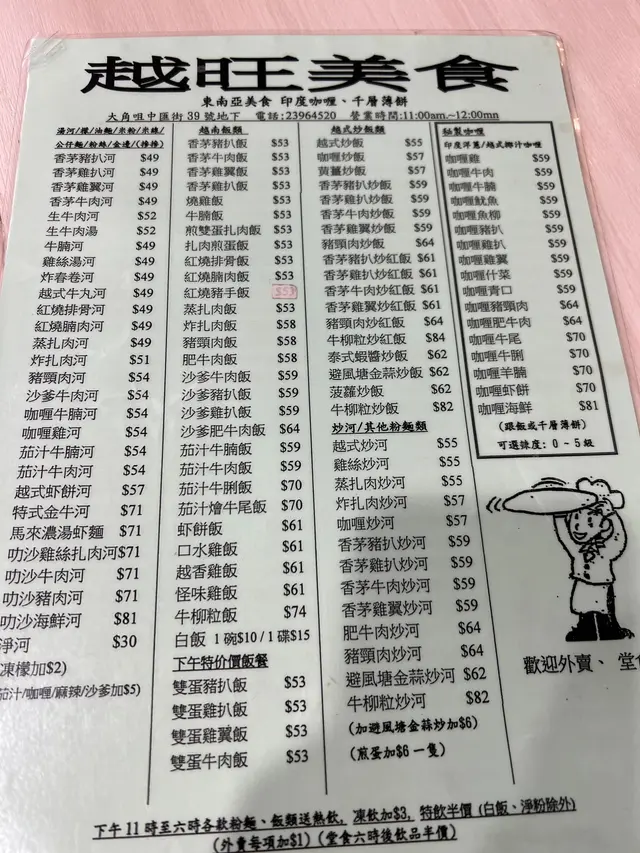 越旺美食
東南亞美食 印度咖喱、千層薄餅
大角咀中匯街 39 號地下 電話:23964520 營業時間:11:00am.~12:00mn
湯河/檬/油麵/米粉/米線/
公仔麵/粉絲/金邊/(撈撈)
香茅豬扒河 $49
香茅雞扒河 $49
香茅雞翼河 $49
香茅牛肉河 $49
生牛肉河 $52
生牛肉湯 $52
牛腩河 $49
雞絲湯河 $49
炸春卷河 $49
越式牛丸河 $49
紅燒排骨河 $49
紅燒腩肉河 $49
蒸扎肉河 $49
炸扎肉河 $51
豬頸肉河 $54
沙爹牛肉河 $54
咖喱牛腩河 $54
咖喱雞河 $54
茄汁牛腩河 $54
茄汁牛肉河 $54
越式蝦餅河 $57
特式金牛河 $71
馬來濃湯蝦麵 $71
叻沙雞絲扎肉河$71
叻沙牛肉河 $71
叻沙豬肉河 $71
叻沙海鮮河 $81
淨河 $30
凍檬加$2)
茄汁/咖喱/麻辣/沙爹加$5)
越南飯類
香茅豬扒飯 $53
香茅牛肉飯 $53
香茅雞翼飯 $53
香茅雞扒飯 $53
燒雞飯 $53
牛腩飯 $53
煎雙蛋扎肉飯 $53
扎肉煎蛋飯 $53
紅燒排骨飯 $53
紅燒腩肉飯 $53
紅燒豬手飯 $53
蒸扎肉飯 $53
炸扎肉飯 $58
豬頸肉飯 $58
肥牛肉飯 $58
沙爹牛肉飯 $59
沙爹豬扒飯 $59
沙爹雞扒飯 $59
沙爹肥牛肉飯 $64
茄汁牛腩飯 $59
茄汁牛肉飯 $59
茄汁牛脷飯 $70
茄汁燴牛尾飯 $70
蝦餅飯 $61
口水雞飯 $61
越香雞飯 $61
怪味雞飯 $61
牛柳粒飯 $74
白飯 1 碗$10 / 1 碟$15
下午特价價飯餐
雙蛋豬扒飯 $53
雙蛋雞扒飯 $53
雙蛋雞翼飯 $53
雙蛋牛肉飯 $53
越式炒飯類
越式炒飯 $55
咖喱炒飯 $57
黃薑炒飯 $57
香茅豬扒炒飯 $59
香茅雞扒炒飯 $59
香茅牛肉炒飯 $59
香茅雞翼炒飯 $59
豬頸肉炒飯 $64
香茅豬扒炒紅飯 $61
香茅雞扒炒紅飯 $61
香茅牛肉炒紅飯 $61
香茅雞翼炒紅飯 $61
豬頸肉炒紅飯 $64
牛柳粒炒紅飯 $84
泰式蝦醬炒飯 $62
避風塘金蒜炒飯 $62
菠蘿炒飯 $62
牛柳粒炒飯 $82
炒河/其他粉麵類
越式炒河 $55
雞絲炒河 $55
蒸扎肉炒河 $55
炸扎肉炒河 $57
咖喱炒河 $57
香茅豬扒炒河 $59
香茅雞扒炒河 $59
香茅牛肉炒河 $59
香茅雞翼炒河 $59
肥牛肉炒河 $64
豬頸肉炒河 $64
避風塘金蒜炒河 $62
牛柳粒炒河 $82
(加避風塘金蒜炒加$6)
(煎蛋加$6 一隻)
秘製咖喱
印度洋蔥/越式椰汁咖喱
咖喱雞 $59
咖喱牛肉 $59
咖喱牛腩 $59
咖喱魷魚 $59
咖喱魚柳 $59
咖喱豬扒 $59
咖喱雞扒 $59
咖喱雞翼 $59
咖喱什菜 $59
咖喱青口 $59
咖喱豬頸肉 $64
咖喱肥牛肉 $64
咖喱牛尾 $70
咖喱牛脷 $70
咖喱羊腩 $70
咖喱蝦餅 $70
咖喱海鮮 $81
(跟飯或千層薄餅)
可選辣度: 0 ~ 5 級
歡迎外賣、堂食
下午 11 時至六時各款粉麵、飯類送熱飲, 凍飲加$3, 特飲半價 (白飯、淨粉除外)
(外賣每項加$1) (堂食六時後飲品半價)